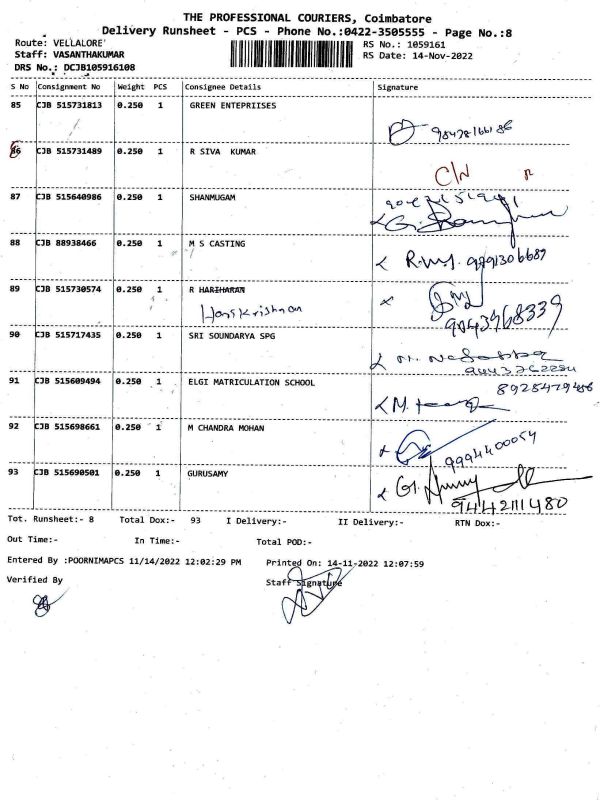 THE PROFESSIONAL COURIERS, Coimbatore
Delivery Runsheet - PCS - Phone No.:0422-3505555 - Page No.:8
Route: VELLALORE
Staff: VASANTHAKUMAR
DRS No.: DCJB105916108
RS No.: 1059161
RS Date: 14-Nov-2022
S No Consignment No Weight PCS Consignee Details Signature
85 CJB 515731813 0.250 1 GREEN ENTEPRIISES
86 CJB 515731489 0.250 1 R SIVA KUMAR
C/N
87 CJB 515640986 0.250 1 SHANMUGAM
88 CJB 88938466 0.250 1 M S CASTING
89 CJB 515730574 0.250 1 R HARIHARAN
9043968339
90 CJB 515717435 0.250 1 SRI SOUNDARYA SPG
91 CJB 515609494 0.250 1 ELGI MATRICULATION SCHOOL
92 CJB 515698661 0.250 1 M CHANDRA MOHAN
9994400054
93 CJB 515690501 0.250 1 GURUSAMY
9442111480
Tot. Runsheet:- 8 Total Dox:- 93 I Delivery:- II Delivery:- RTN Dox:-
Out Time:- In Time:- Total POD:-
Entered By :POORNIMAPCS 11/14/2022 12:02:29 PM Printed On: 14-11-2022 12:07:59
Verified By Staff Signature